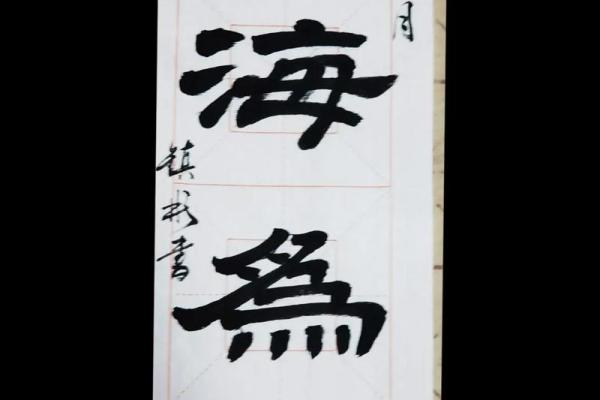 月
海為
镇彬書